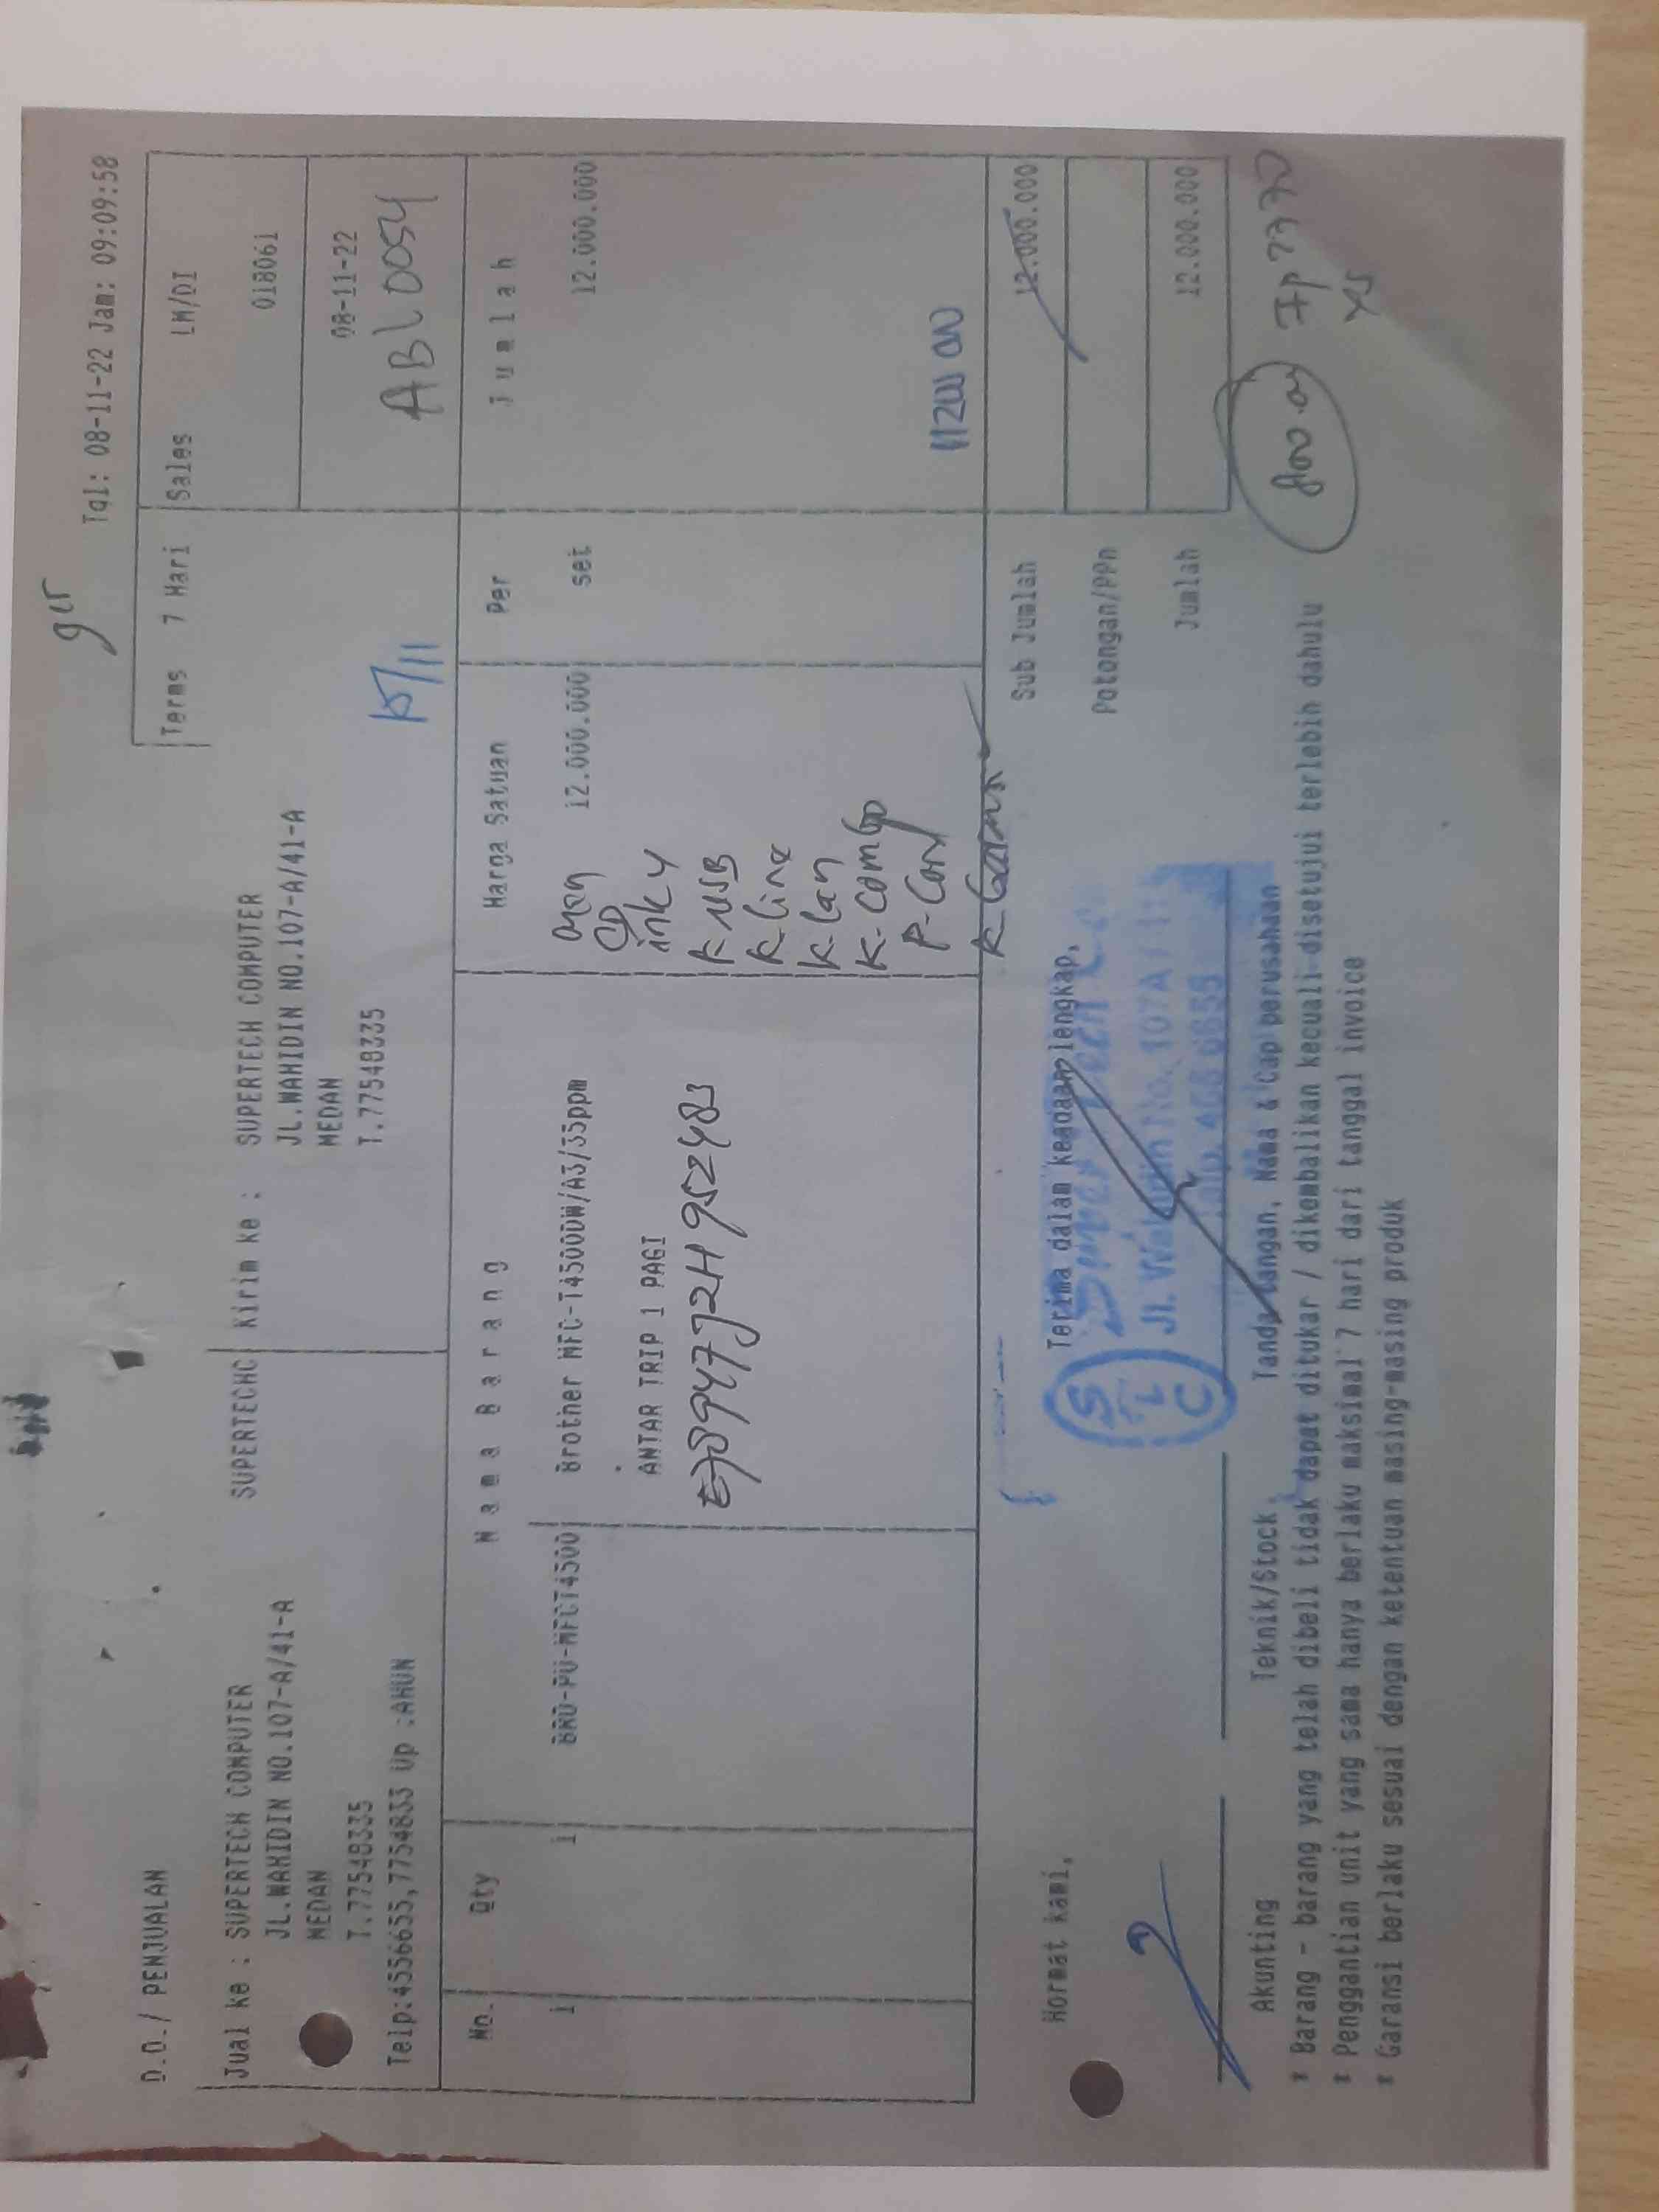 Tgl: 08-11-22 Jam: 09:09:58
D.O./ PENJUALAN
Terms 7 Hari Sales LM/DI
Jual ke : SUPERTECH COMPUTER SUPERTECHC Kirim ke : SUPERTECH COMPUTER 018061
JL.WAHIDIN NO.107-A/41-A JL.WAHIDIN NO.107-A/41-A
MEDAN MEDAN 08-11-22
T.77548335 T.77548335
ABL0054
15/11
Telp:4556655,7754833 Up :AHUN
No. Qty Nama Barang Harga Satuan Per Jumlah
1 1 BRO-PU-MFCT4500 Brother MFC-T4500DW/A3/35ppm 12.000.000 set 12.000.000
CD
ink 4
ANTAR TRIP 1 PAGI
K-USB
K-Line
K-Lan
K-Combo
P-Cord
Sub Jumlah 12.000.000
Hormat kami, Terima dalam keadaan lengkap,
Potongan/PPn
STC
Jl. Wahidin No. 107A /
Jumlah 12.000.000
Akunting Teknik/Stock Tanda tangan, Nama & Cap perusahaan
* Barang - barang yang telah dibeli tidak dapat ditukar / dikembalikan kecuali disetujui terlebih dahulu
* Penggantian unit yang sama hanya berlaku maksimal 7 hari dari tanggal invoice
* Garansi berlaku sesuai dengan ketentuan masing-masing produk